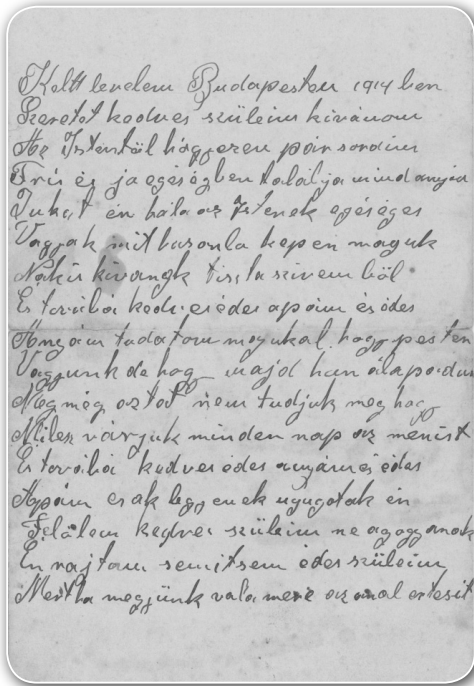 Keltt levelem Budapesten 1914 ben
Szeretet kedves szüleim kivánom
Az Istentöl hogy ezen pár soraim
Fris és jo egéségben talalja mind anyia
Jukat én hála az Istenek egéséges
Vagyak mit hasonla kepen maguk
Nakis kivangk tiszta szivem böl
Es továbá kedves édes apám és édes
Anyám tudatom magukal hogy pesten
Vagyunk de hogy majd hun álapodun
Meg még aztat nem tudjuk meg hogy
Milesz várjuk minden nap az menist
Es továbá kedves édes anyám és édes
Apám csak legyenek nyugotak én
Felölem kedves szüleim ne agogyanak
En rajtam semitsem édes szüleim
Mert ha megjünk vala mere azonal ertesit